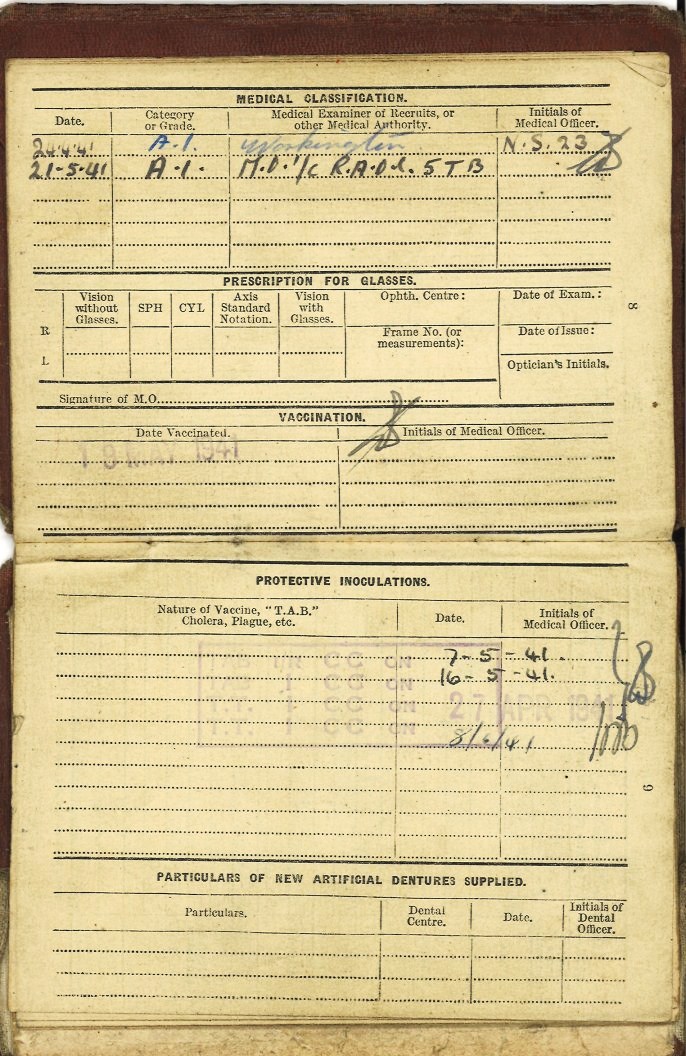 MEDICAL CLASSIFICATION.
Date. Category or Grade. Medical Examiner of Recruits, or other Medical Authority. Initials of Medical Officer.
24.4.41 A.1. Workington N.S. 23
21-5-41 A.1. M.O. I/C R.A.O.C. 5 T B
PRESCRIPTION FOR GLASSES.
Vision without Glasses. SPH CYL Axis Standard Notation. Vision with Glasses. Ophth. Centre: Date of Exam.:
R Frame No. (or measurements): Date of Issue:
L Optician's Initials.
Signature of M.O.
8
VACCINATION.
Date Vaccinated. Initials of Medical Officer.
1941
PROTECTIVE INOCULATIONS.
Nature of Vaccine, "T.A.B." Cholera, Plague, etc. Date. Initials of Medical Officer.
CC ON 7-5-41.
CC ON 16-5-41.
T.T. 1 CC ON 27 APR 1941
T.T. 1 CC ON 8/6/41
9
PARTICULARS OF NEW ARTIFICIAL DENTURES SUPPLIED.
Particulars. Dental Centre. Date. Initials of Dental Officer.